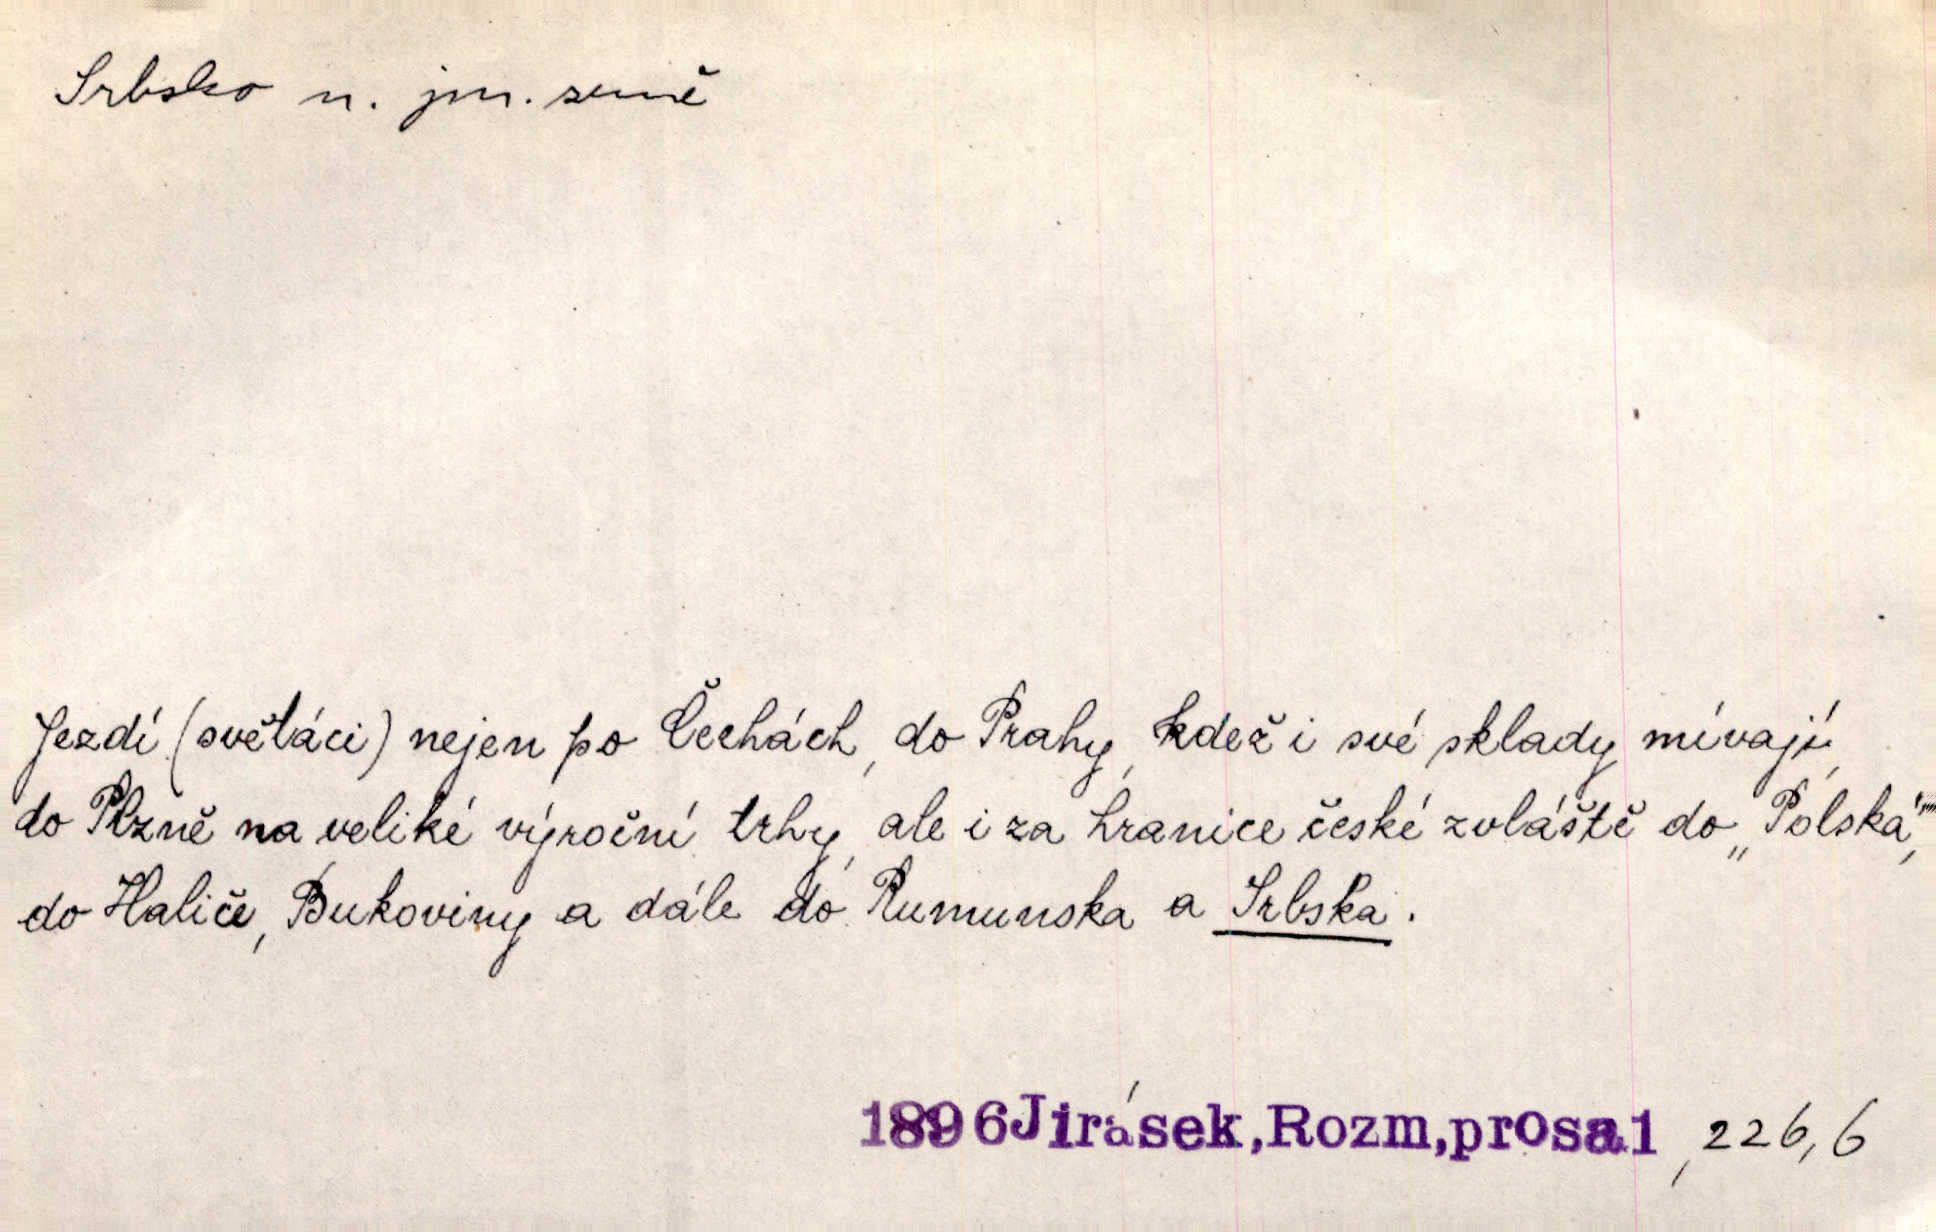 Srbsko n. jm. země
Jezdí (světáci) nejen po Čechách, do Prahy, kdež i své sklady mívají,
do Plzně na veliké výroční trhy, ale i za hranice české zvláště do „Polska“,
do Haliče, Bukoviny a dále do Rumunska a Srbska.
1896 Jirásek, Rozm, prosa1, 226,6